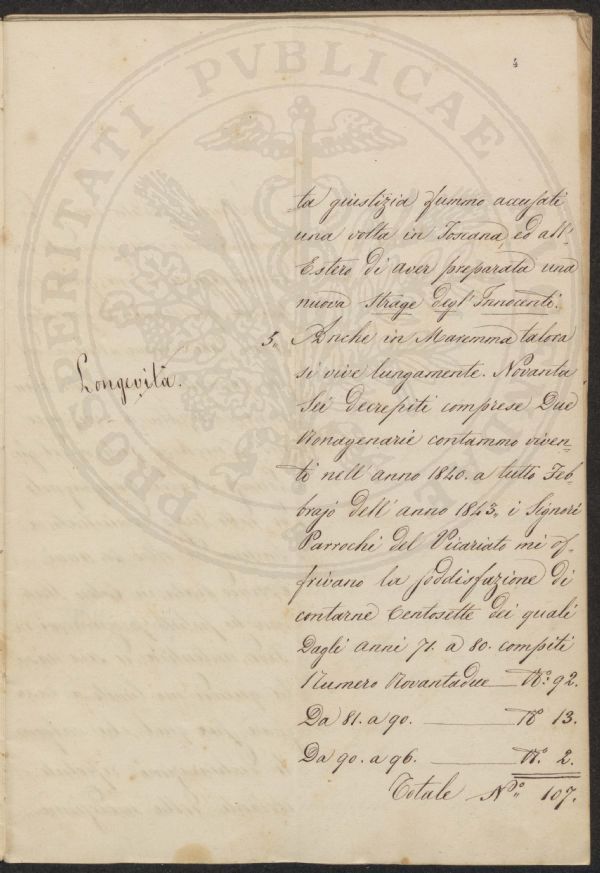 4
ta giustizia fummo accusati
una volta in Toscana, ed all'
Estero di aver preparata una
nuova Strage degl' Innocenti.
5. Anche in Maremma talora
Longevità.
si vive lungamente. Novanta
Sei decrepiti comprese Due
Nonagenarie contammo viven-
ti nell' anno 1840. a tutto Feb-
brajo dell' anno 1843. i Signori
Parrochi del Vicariato mi of-
frivano la soddisfazione di
contarne Centosette dei quali
Dagli anni 71. a 80. compiti
Numero Novantadue — N.º 92.
Da 81. a 90. — Nº 13.
Da 90. a 96. — N.º 2.
Totale N.º 107.
PROSPERITATI PVBLICAE